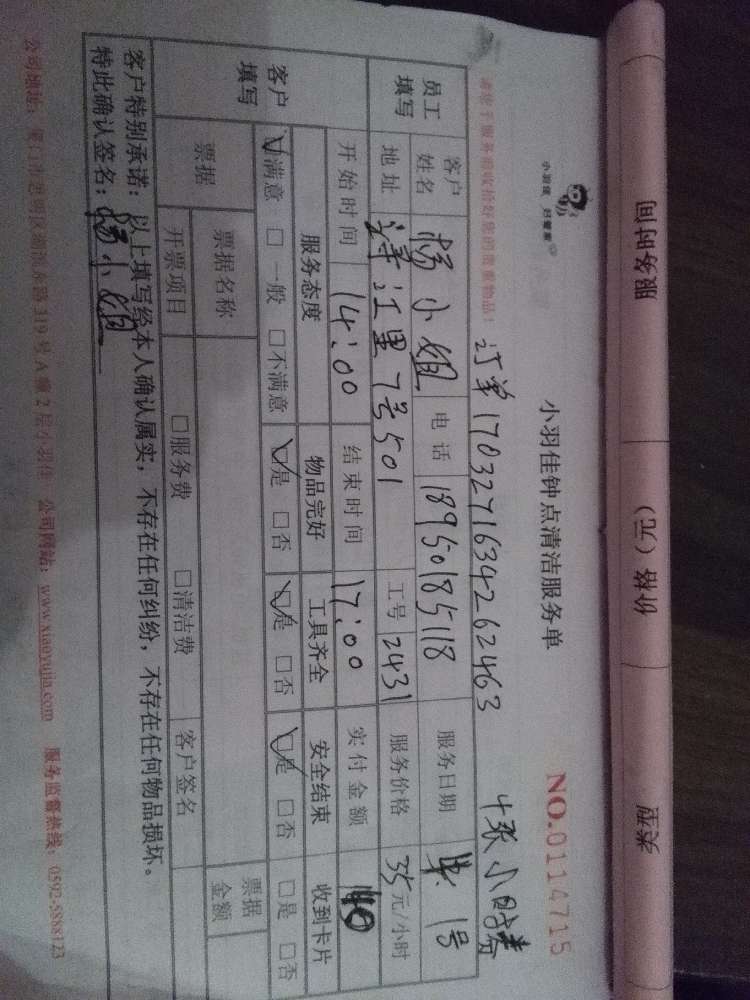 服务时间 价格（元） 类型
小羽佳 好管家
小羽佳钟点清洁服务单
NO.0114715
订单1703271634262463 4张小时券
请您于服务前收拾好您的贵重物品！
员工填写 客户姓名 杨小姐 电话 18950185118 服务日期 1号
地址 江里7号501 工号 2431 服务价格 35元/小时
客户填写 开始时间 14:00 结束时间 17:00 实付金额 140
服务态度 物品完好 工具齐全 安全结束 收到卡片
☑满意 □一般 □不满意 ☑是 □否 ☑是 □否 ☑是 □否 □是 □否
票据 票据名称 票据金额
开票项目 □服务费 □清洁费 客户签名
客户特别承诺：以上填写经本人确认属实，不存在任何纠纷，不存在任何物品损坏。
特此确认签名：杨小姐
公司地址：厦门市思明区湖滨东路319号A幢2层小羽佳 公司网站：www.xiaoyujia.com 服务监督热线：0592-5888123